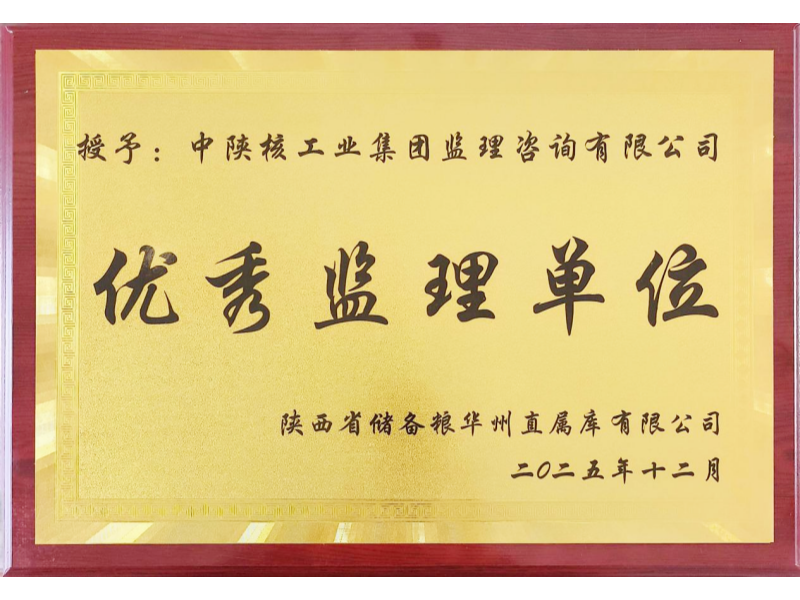 授予：中陕核工业集团监理咨询有限公司
优秀监理单位
陕西省储备粮华州直属库有限公司
二〇二五年十二月